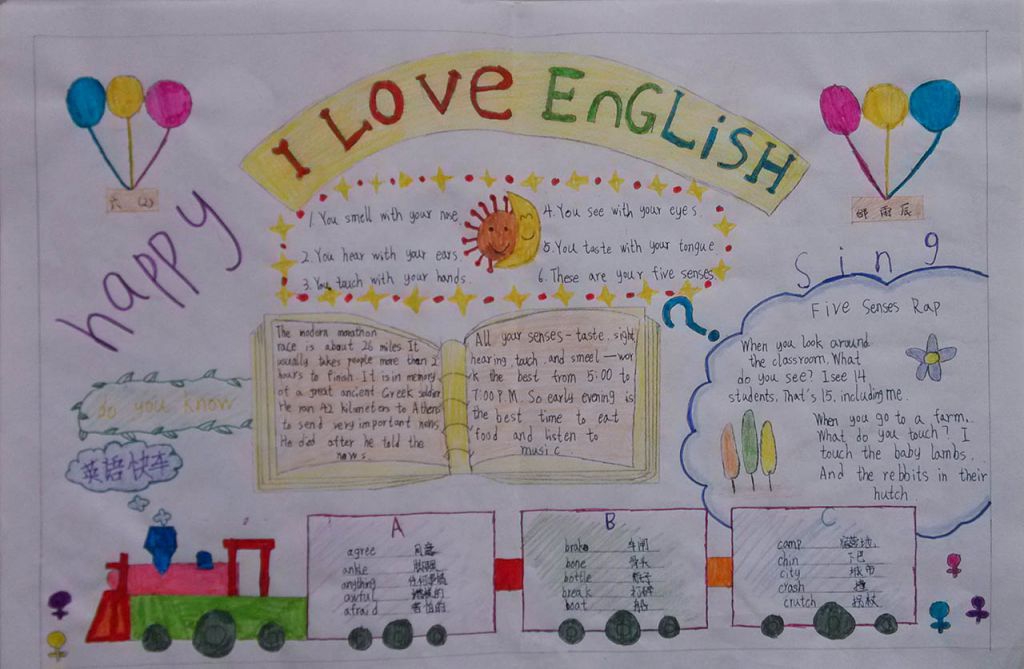 I LOVE EnGLiSH
六 (2)
邱雨辰
happy
1. You smell with your nose
2. You hear with your ears
3. You tauch with your hands.
4. You see with your eyes.
5. You taste with your tongue
6. These are your five senses
The modern marathon
race is about 26 miles. It
usually takes people more than 2
hours to finish. It is in memory
of a great ancient Greek soldier
He ran 42 kilometers to Athens
to send very important news
He died after he told the
news.
All your senses - taste, sight,
hearing, tauch and smeel — wor
k the best from 5:00 to
7:00 P.M. So early evening is
the best time to eat
food and listen to
music.
?
Sing
Five Senses Rap
When you look around
the classroom. What
do you see? I see 14
students. That's 15, including me.
When you go to a farm,
What do you touch? I
touch the baby lambs.
And the rebbits in their
hutch
do you know
英語快车
A
agree 同意
ankle 脚踝
anything 任何事情
awful 糟糕的
afraid 害怕的
B
brake 车闸
bone 骨头
bottle 瓶子
break 打碎
boat 船
C
camp 宿营地
chin 下巴
city 城市
crash 撞
crutch 拐杖